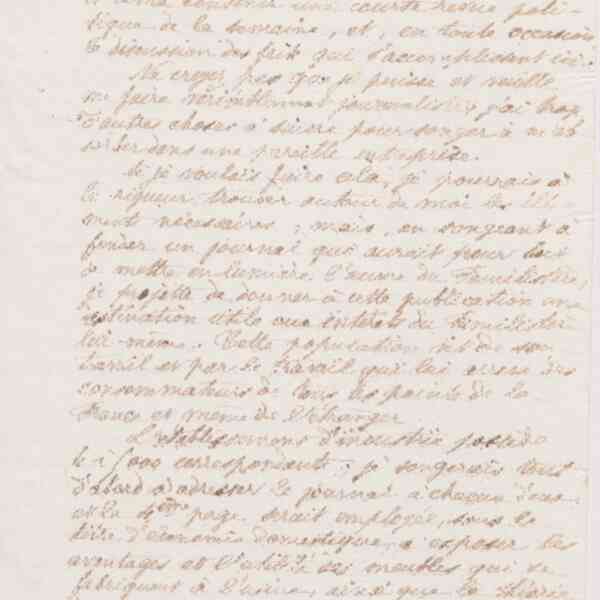 une courte revue poli-
tique de la semaine, et, en toute occasion
la discussion des faits qui s'accomplissent ici.
Ne croyez pas que je puisse et veuille
me faire véritablement journaliste, j'ai trop
d'autres choses à suivre pour songer à m'ab
sorber dans une pareille entreprise.
Si je voulais faire cela, je pourrais à
la rigueur trouver autour de moi les élé
ments nécessaires ; mais, en songeant à
fonder un journal qui aurait pour but
de mettre en lumière l'œuvre du Familistère,
je projette de donner à cette publication une
destination utile aux intérêts du Familistère
lui-même. Cette population vit de son
travail et par le travail qui lui des
consommateurs de tous les points de la
France et même de l'étranger
L'établissement d'industrie possède
correspondants ; je songerais tout
d'abord à adresser le journal à chacun d'eux
et la 4ème page serait employée, sous le
titre d'économie domestique, à exposer les
avantages et l'utilité des meubles qui se
fabriquent à l'usine, ainsi que la